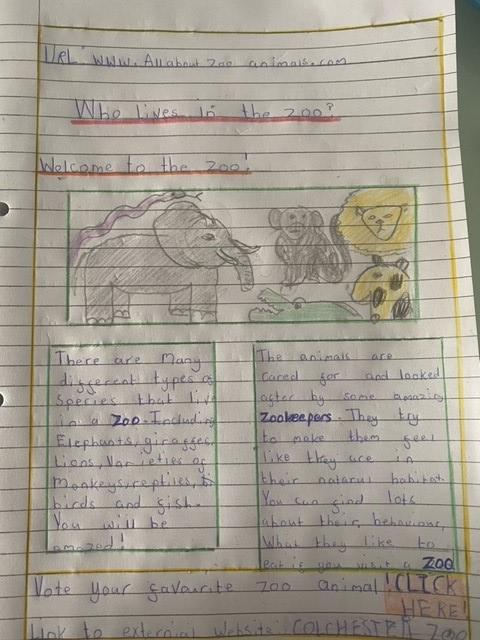 URL: WWW. All about Zoo animals.com
Who lives in the zoo?
Welcome to the zoo!
There are Many
different types of
species that live
in a ZOO. Including
Elephants, giraffes,
Lions, Varieties of
Monkeys, reptiles,
birds and fish.
You will be
amazed!
The animals are
cared for and looked
after by some amazing
Zookeepers. They try
to make them feel
like they are in
their natarul habitat.
You can find lots
about their, behaviour,
What they like to
eat if you visit a ZOO
Vote your favourite zoo animal! CLICK
HERE!
Link to external website: COLCHESTER Zoo